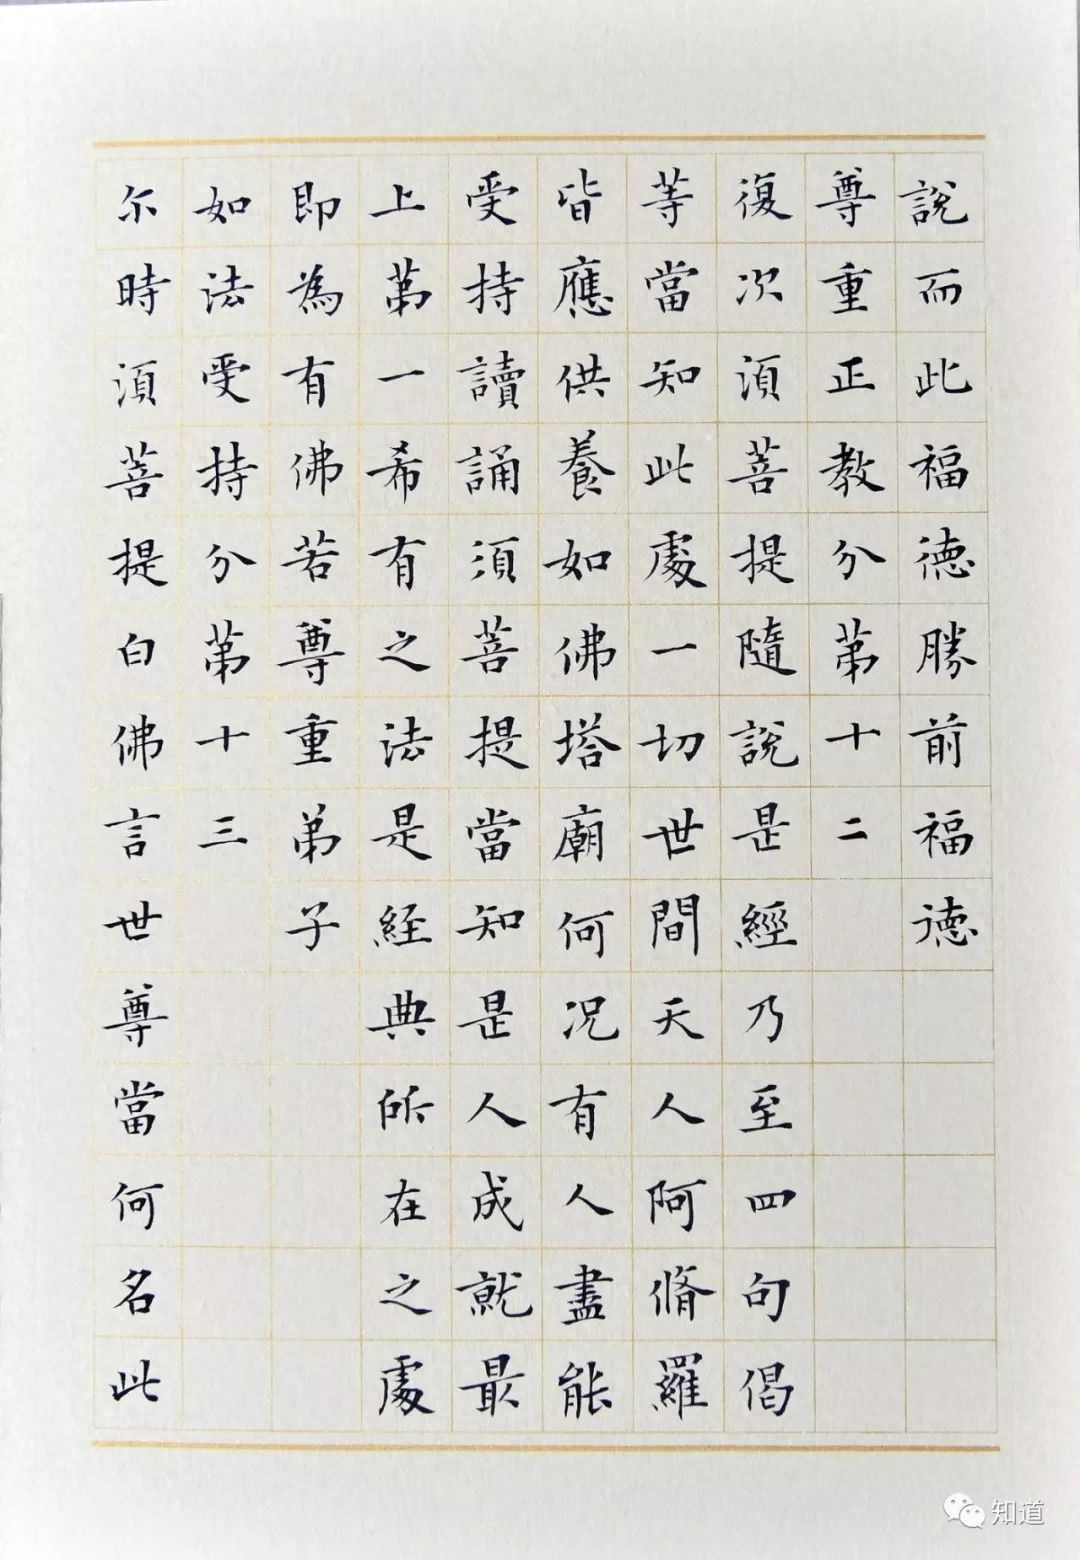 說而此福德勝前福德
尊重正教分第十二
復次須菩提隨說是經乃至四句偈
等當知此處一切世間天人阿脩羅
皆應供養如佛塔廟何況有人盡能
受持讀誦須菩提當知是人成就最
上第一希有之法是経典所在之處
即為有佛若尊重弟子
如法受持分第十三
尓時須菩提白佛言世尊當何名此
知道